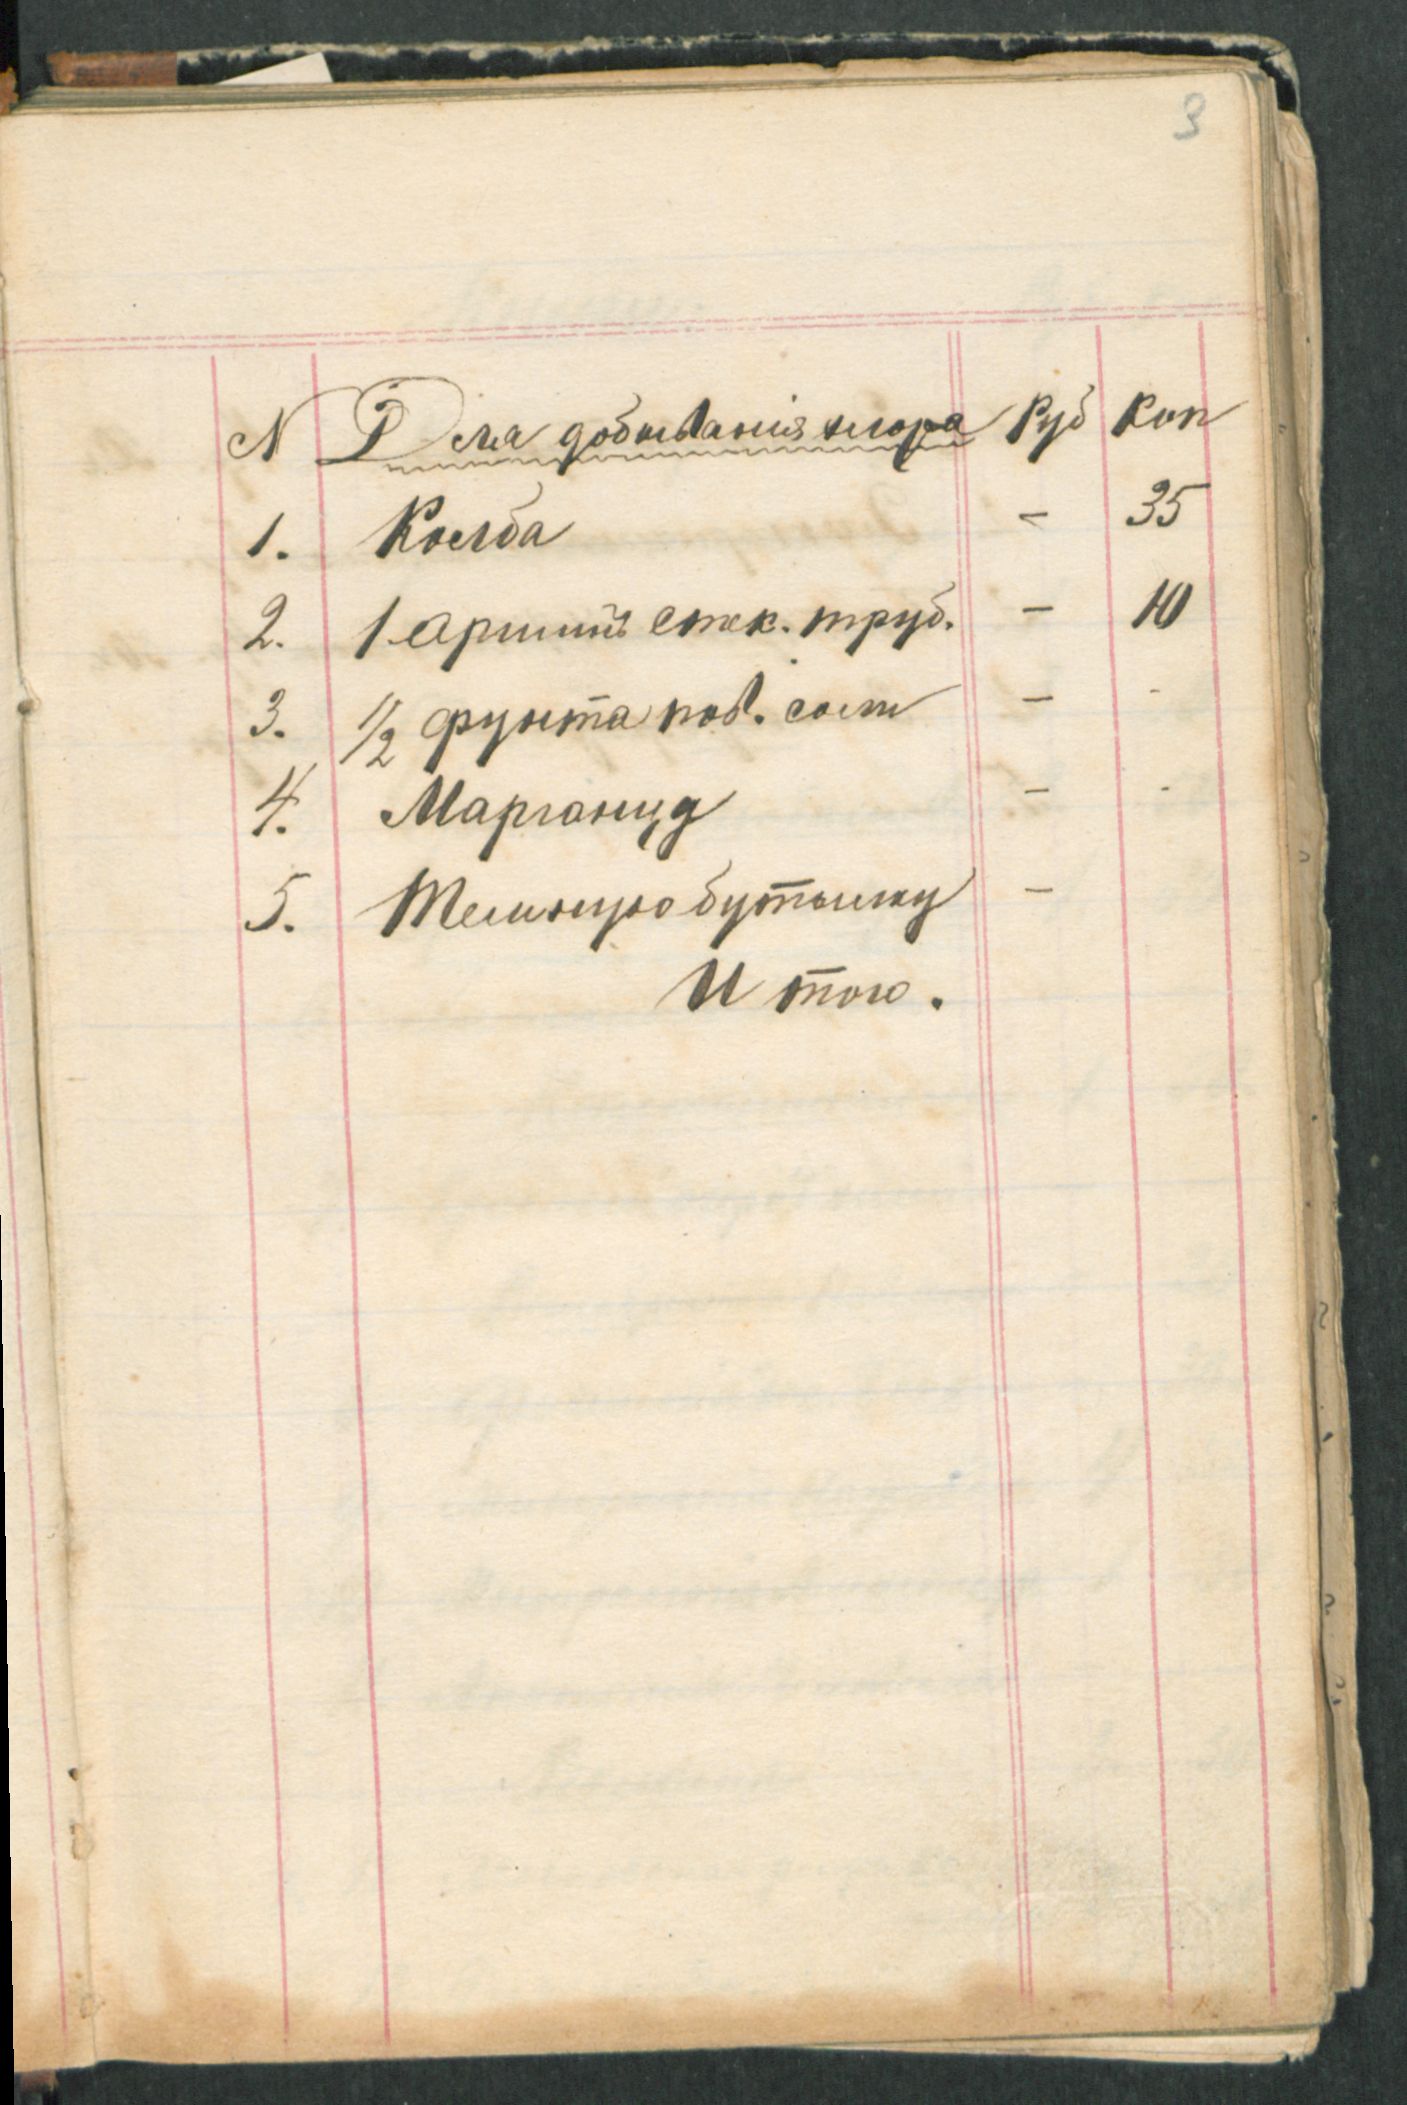 3
N Для добыванія хлора Руб Коп
1. Колба - 35
2. 1 аршинъ стек. труб. - 10
3. 1/2 фунта пов. соли - -
4. Марганцу - -
5. Темную бутылку -
Итого.